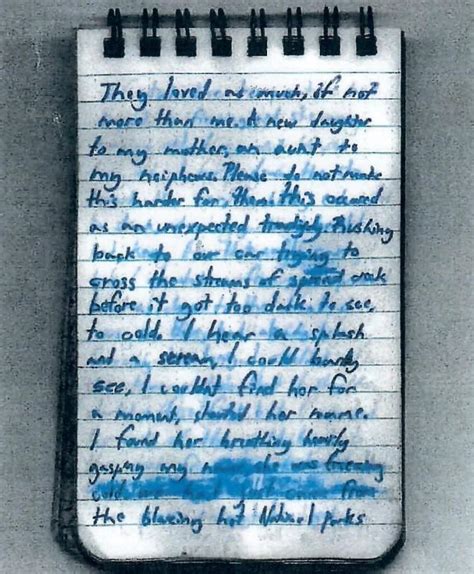 They loved as much, if not
more than me. A new daughter
to my mother, an aunt to
my neiphews. Please do not make
this harder for them, this occured
as an unexpected tradgidy. Rushing
back to our car trying to
cross the streams of spread creek
before it got too dark to see,
to cold. I hear a splash
and a scream, I could barely
see, I couldnt find her for
a moment, shouted her name.
I found her breathing heavily
gasping my name she was freezing
cold from
the blazing hot National parks